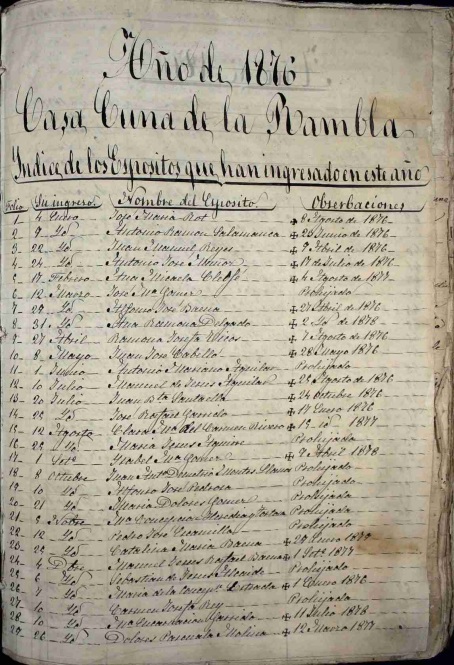 Año de 1876
Casa Cuna de la Rambla
Yndice de los Espositos que han ingresado en este año
Folio Su ingreso. Nombre del Esposito. Observaciones
1 4 Enero José Maria Rot ✠ 8 Agosto de 1876
2 9 Yd Antonio Ramon Salamanca ✠ 26 Junio de 1876
3 22 Yd Juan Manuel Reyes ✠ 7 Abril de 1876
4 24 Yd Antonio José ✠ 17 de Julio de 1876
5 17 Febrero Ana Micaela ✠ 4 Agosto de 1877
6 12 Marzo José Mª Gomez Prohijado
7 25 Yd Alfonso José Baena ✠ 27 Abril de 1876
8 31 Yd Ana Ramona Delgado ✠ 2 Yd de 1878
9 27 Abril Ramona Josefa ✠ 7 Agosto de 1876
10 8 Mayo Juan José Cabello ✠ 28 Mayo 1876
11 1 Junio Antonio Mariano Aguilar Prohijado
12 10 Julio Manuel de Jesus Aguilar ✠ 25 Agosto de 1876
13 20 Julio Juan Bta ✠ 24 Octubre 1876
14 25 Yd José Rafael Garrido ✠ 17 Enero 1876
15 12 Agosto Clara Mª del Carmen ✠ 13 Yd 1877
16 22 Yd Maria Jesus Prohijado
17 Ysabel Mª Gomez ✠ 7 Abril 1878
18 8 Octubre Juan Antº Demetrio Montes Llamas Prohijado
19 10 Yd Alfonso José Pedrosa Prohijado
20 21 Yd Maria Dolores Gomez Prohijado
21 Mª Concepcion Prohijado
22 12 Yd Pedro José Prohijado
23 Yd Catalina Maria Baena ✠ 1877
24 4 Manuel Jesus Rafael Baena ✠ 1877
25 6 Yd Sebastian de Jesus Prohijado
26 7 Yd Maria de la Estrada ✠ Enero 1876
27 10 Yd Carmen Josefa Rey Prohijado
28 10 Yd Mª Encarnacion Garrido ✠ 11 Julio 1878
29 26 Yd Dolores Pascuala Molina ✠ 12 Marzo 1877